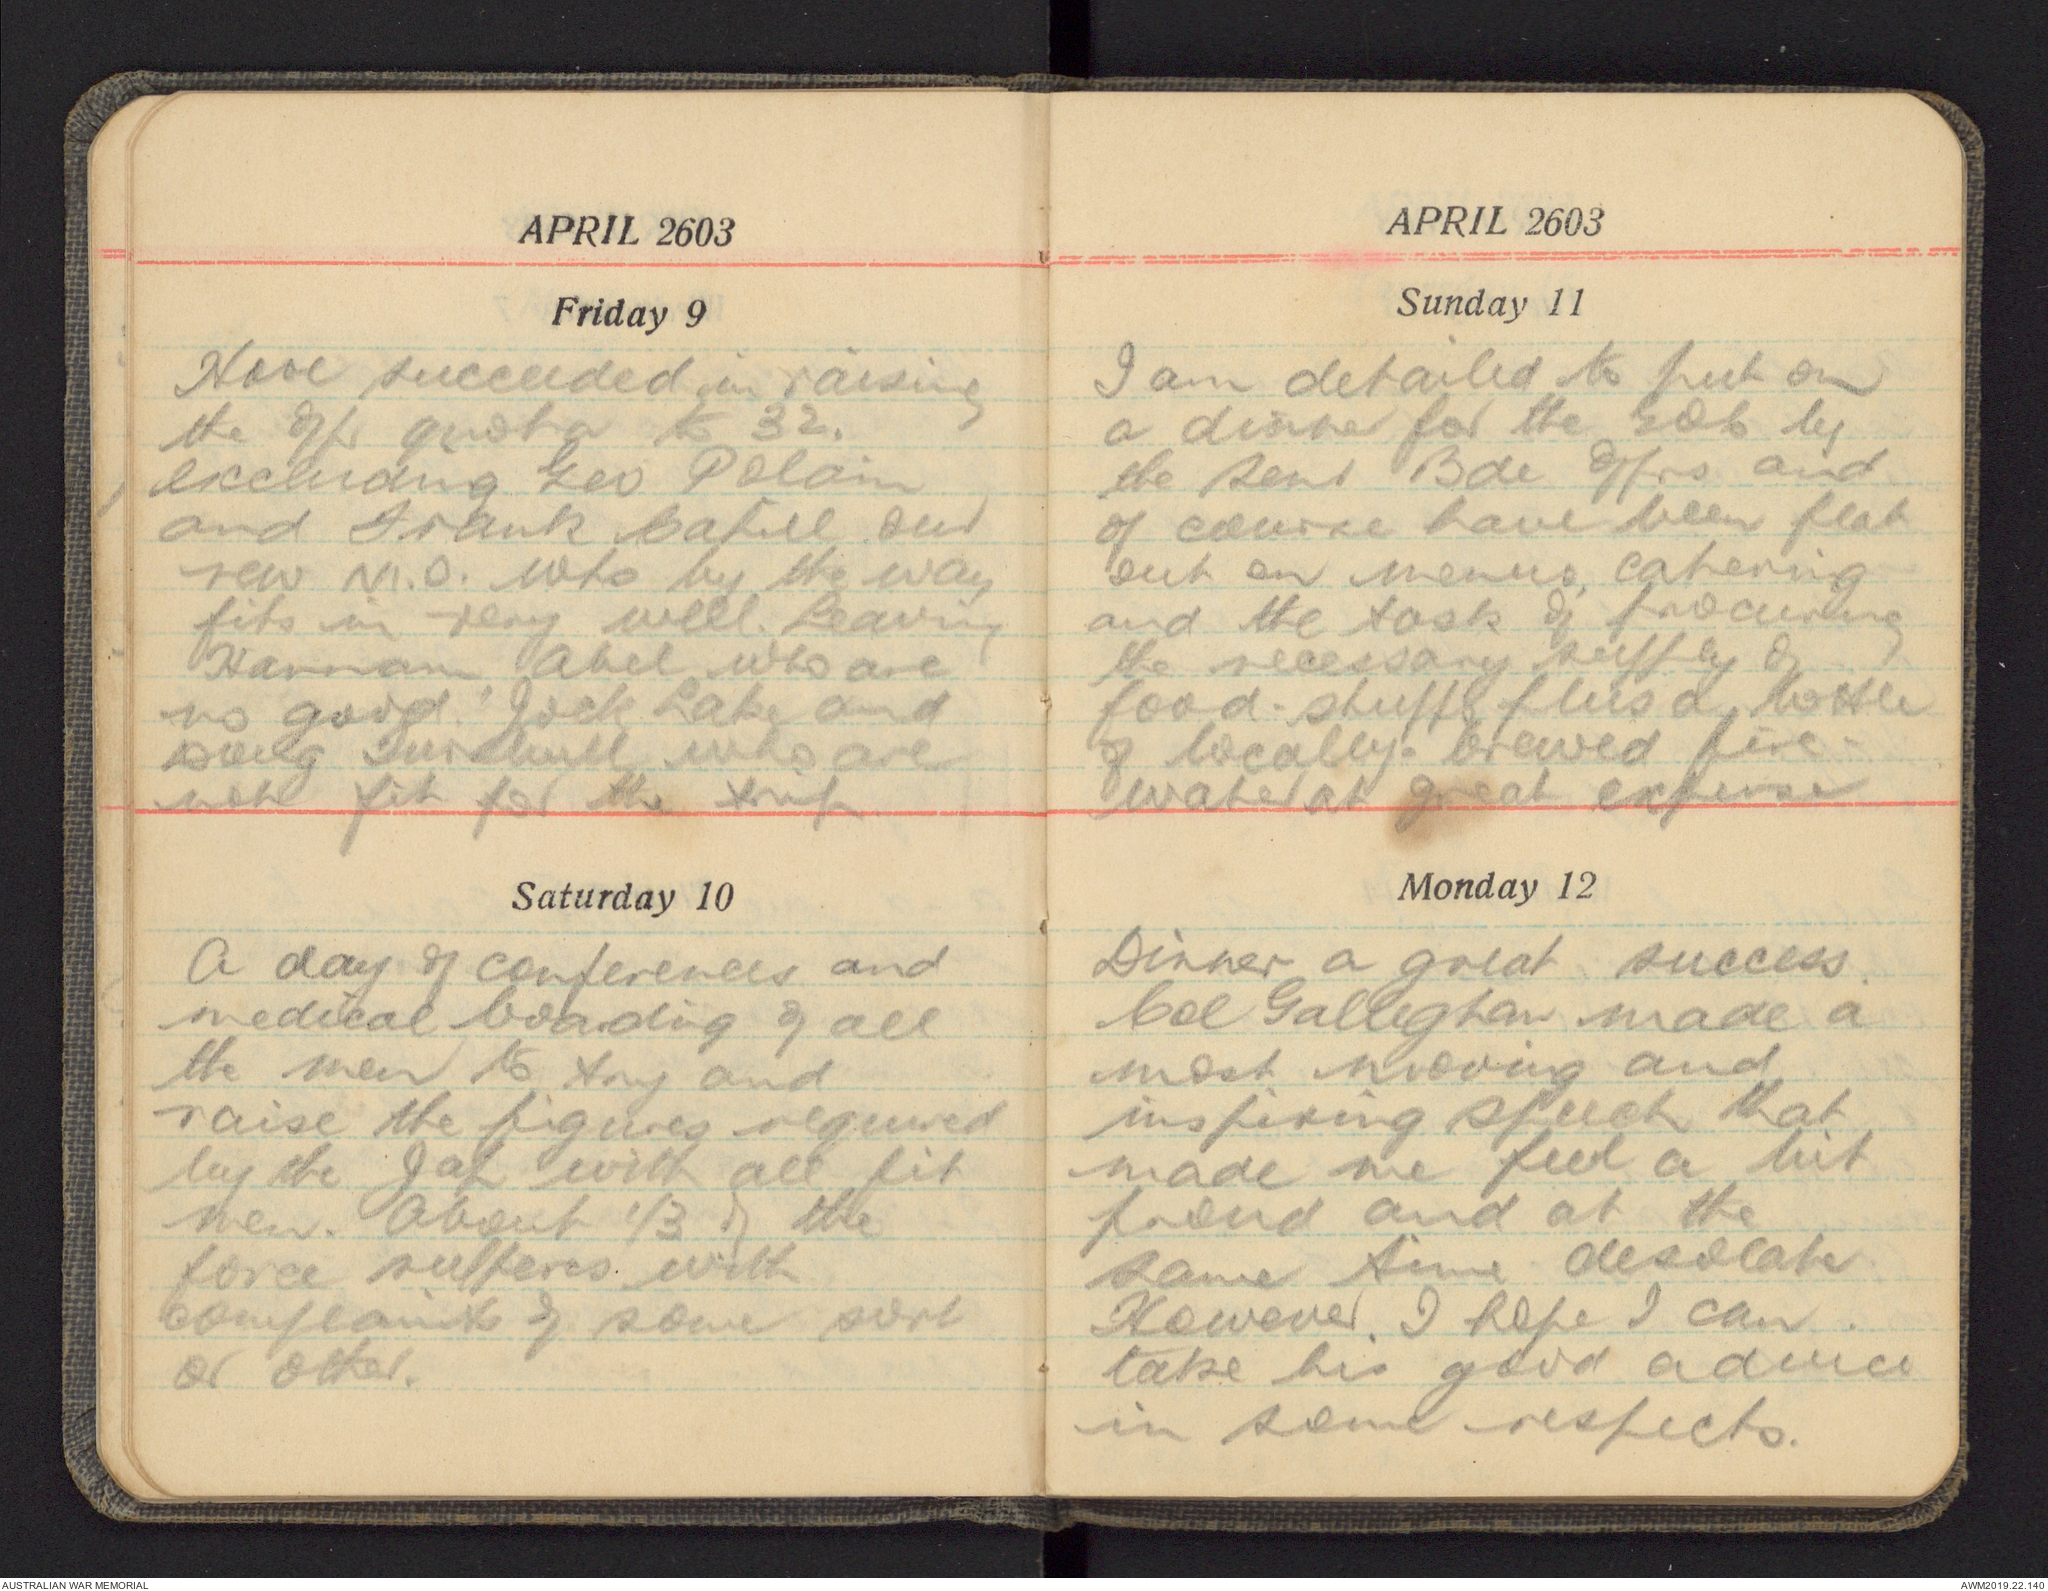 APRIL 2603
Friday 9
Have succeeded in raising
the Offr quota to 32.
excluding Geo Polain
and Frank Cahill our
new M.O. who by the way
fits in very well. Leaving
Hannam Abel who are
no good! Jock Lake and
Doug Turnbull who are
not fit for the trip.
Saturday 10
A day of conferences and
medical boarding of all
the men to try and
raise the figures required
by the Jap with all fit
men. About 1/3 of the
force sufferes with
complaints of some sort
or other.
APRIL 2603
Sunday 11
I am detailed to put on
a dinner for the
the Bde Offrs and
of course have been flat
out on menus, catering
and the task of procuring
the necessary supply of
food-stuffs plus a bottle
of locally-brewed fire-
water at great expense
Monday 12
Dinner a great success.
Col Galleghan made a
most moving and
inspiring speech that
made me feel a bit
proud and at the
same time desolate
However, I hope I can
take his good advice
in some respects.
AUSTRALIAN WAR MEMORIAL
AWM2019.22.140